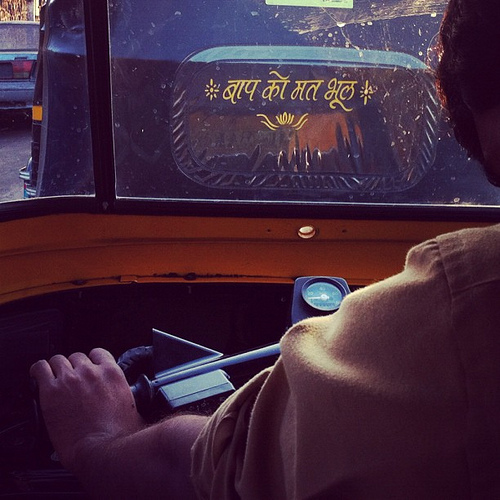 बाप को मत भूल